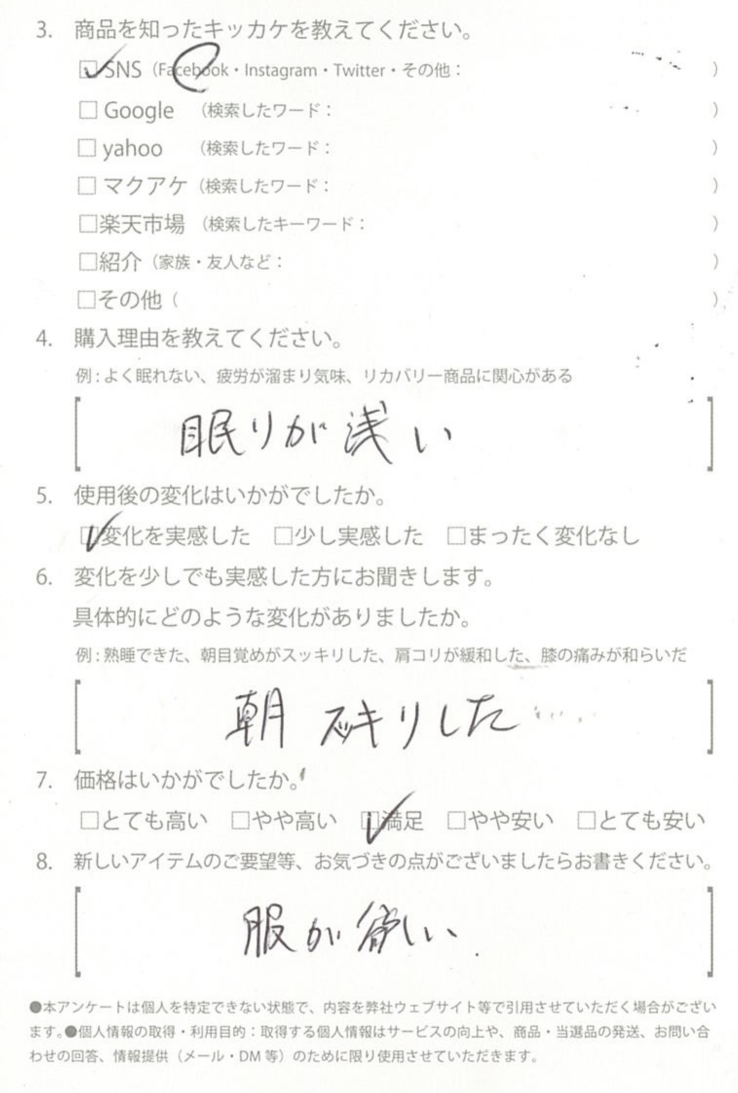 3. 商品を知ったキッカケを教えてください。
☑SNS（Facebook・Instagram・Twitter・その他： ）
□ Google （検索したワード： ）
□ yahoo （検索したワード： ）
□ マクアケ（検索したワード： ）
□楽天市場（検索したキーワード： ）
□紹介（家族・友人など： ）
□その他（ ）
4. 購入理由を教えてください。
例：よく眠れない、疲労が溜まり気味、リカバリー商品に関心がある
眠りが浅い
5. 使用後の変化はいかがでしたか。
☑変化を実感した □少し実感した □まったく変化なし
6. 変化を少しでも実感した方にお聞きします。
具体的にどのような変化がありましたか。
例：熟睡できた、朝目覚めがスッキリした、肩コリが緩和した、膝の痛みが和らいだ
朝 スッキリした
7. 価格はいかがでしたか。
□とても高い □やや高い ☑満足 □やや安い □とても安い
8. 新しいアイテムのご要望等、お気づきの点がございましたらお書きください。
服が欲しい
●本アンケートは個人を特定できない状態で、内容を弊社ウェブサイト等で引用させていただく場合がござい
ます。●個人情報の取得・利用目的：取得する個人情報はサービスの向上や、商品・当選品の発送、お問い合
わせの回答、情報提供（メール・DM 等）のために限り使用させていただきます。